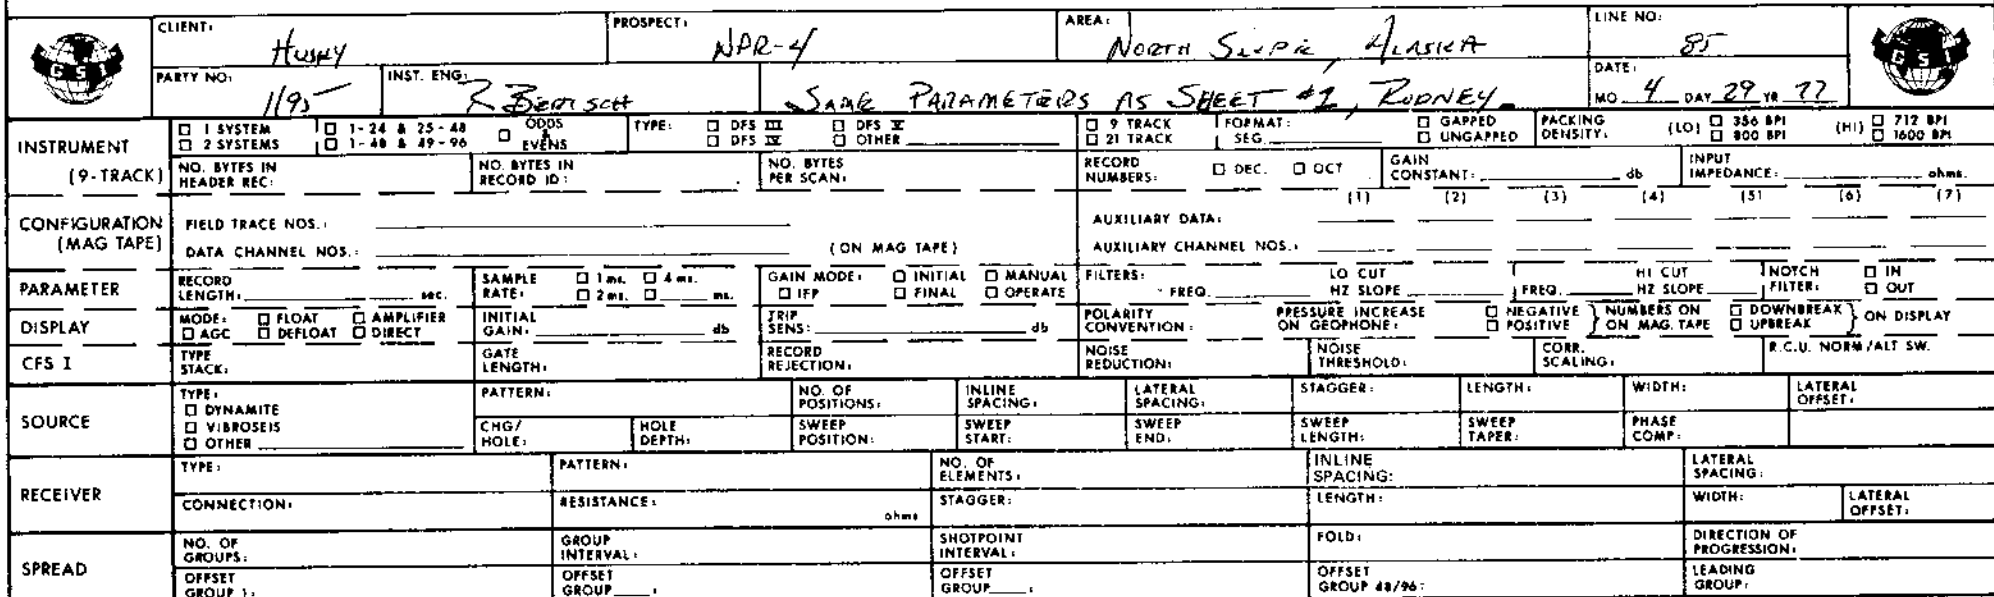 CLIENT: Husky PROSPECT: NPR-4 AREA: NORTH SLOPE, ALASKA LINE NO: 85
GSI GSI
PARTY NO: 1195 INST. ENG: R BERTSCH SAME PARAMETERS AS SHEET #1, RODNEY. DATE: MO. 4 DAY 29 YR 77
INSTRUMENT (9-TRACK) □ 1 SYSTEM □ 1-24 & 25-48 □ ODDS & EVENS TYPE: □ DFS III □ DFS V □ 9 TRACK FORMAT: □ GAPPED PACKING DENSITY: (LO) □ 356 BPI (HI) □ 712 BPI
□ 2 SYSTEMS □ 1-48 & 49-96 □ DFS IV □ OTHER □ 21 TRACK SEG. □ UNGAPPED □ 800 BPI □ 1600 BPI
NO. BYTES IN HEADER REC: NO. BYTES IN RECORD ID: NO. BYTES PER SCAN: RECORD NUMBERS: □ DEC. □ OCT GAIN CONSTANT: db INPUT IMPEDANCE: ohms.
(1) (2) (3) (4) (5) (6) (7)
CONFIGURATION (MAG TAPE) FIELD TRACE NOS.: AUXILIARY DATA:
DATA CHANNEL NOS.: (ON MAG TAPE) AUXILIARY CHANNEL NOS.:
PARAMETER RECORD LENGTH: sec. SAMPLE RATE: □ 1 ms. □ 4 ms. □ 2 ms. □ ms. GAIN MODE: □ INITIAL □ MANUAL □ IFP □ FINAL □ OPERATE FILTERS: FREQ. LO CUT HZ SLOPE FREQ. HI CUT HZ SLOPE NOTCH FILTER: □ IN □ OUT
DISPLAY MODE: □ FLOAT □ AMPLIFIER □ AGC □ DEFLOAT □ DIRECT INITIAL GAIN: db TRIP SENS: db POLARITY CONVENTION: PRESSURE INCREASE ON GEOPHONE: □ NEGATIVE □ POSITIVE } NUMBERS ON ON MAG. TAPE □ DOWNBREAK □ UPBREAK } ON DISPLAY
CFS I TYPE STACK: GATE LENGTH: RECORD REJECTION: NOISE REDUCTION: NOISE THRESHOLD: CORR. SCALING: R.C.U. NORM/ALT SW.
SOURCE TYPE: □ DYNAMITE □ VIBROSEIS □ OTHER PATTERN: NO. OF POSITIONS: INLINE SPACING: LATERAL SPACING: STAGGER: LENGTH: WIDTH: LATERAL OFFSET:
CHG/HOLE: HOLE DEPTH: SWEEP POSITION: SWEEP START: SWEEP END: SWEEP LENGTH: SWEEP TAPER: PHASE COMP:
RECEIVER TYPE: PATTERN: NO. OF ELEMENTS: INLINE SPACING: LATERAL SPACING:
CONNECTION: RESISTANCE: ohms STAGGER: LENGTH: WIDTH: LATERAL OFFSET:
SPREAD NO. OF GROUPS: GROUP INTERVAL: SHOTPOINT INTERVAL: FOLD: DIRECTION OF PROGRESSION:
OFFSET GROUP 1: OFFSET GROUP : OFFSET GROUP : OFFSET GROUP 48/96: LEADING GROUP: